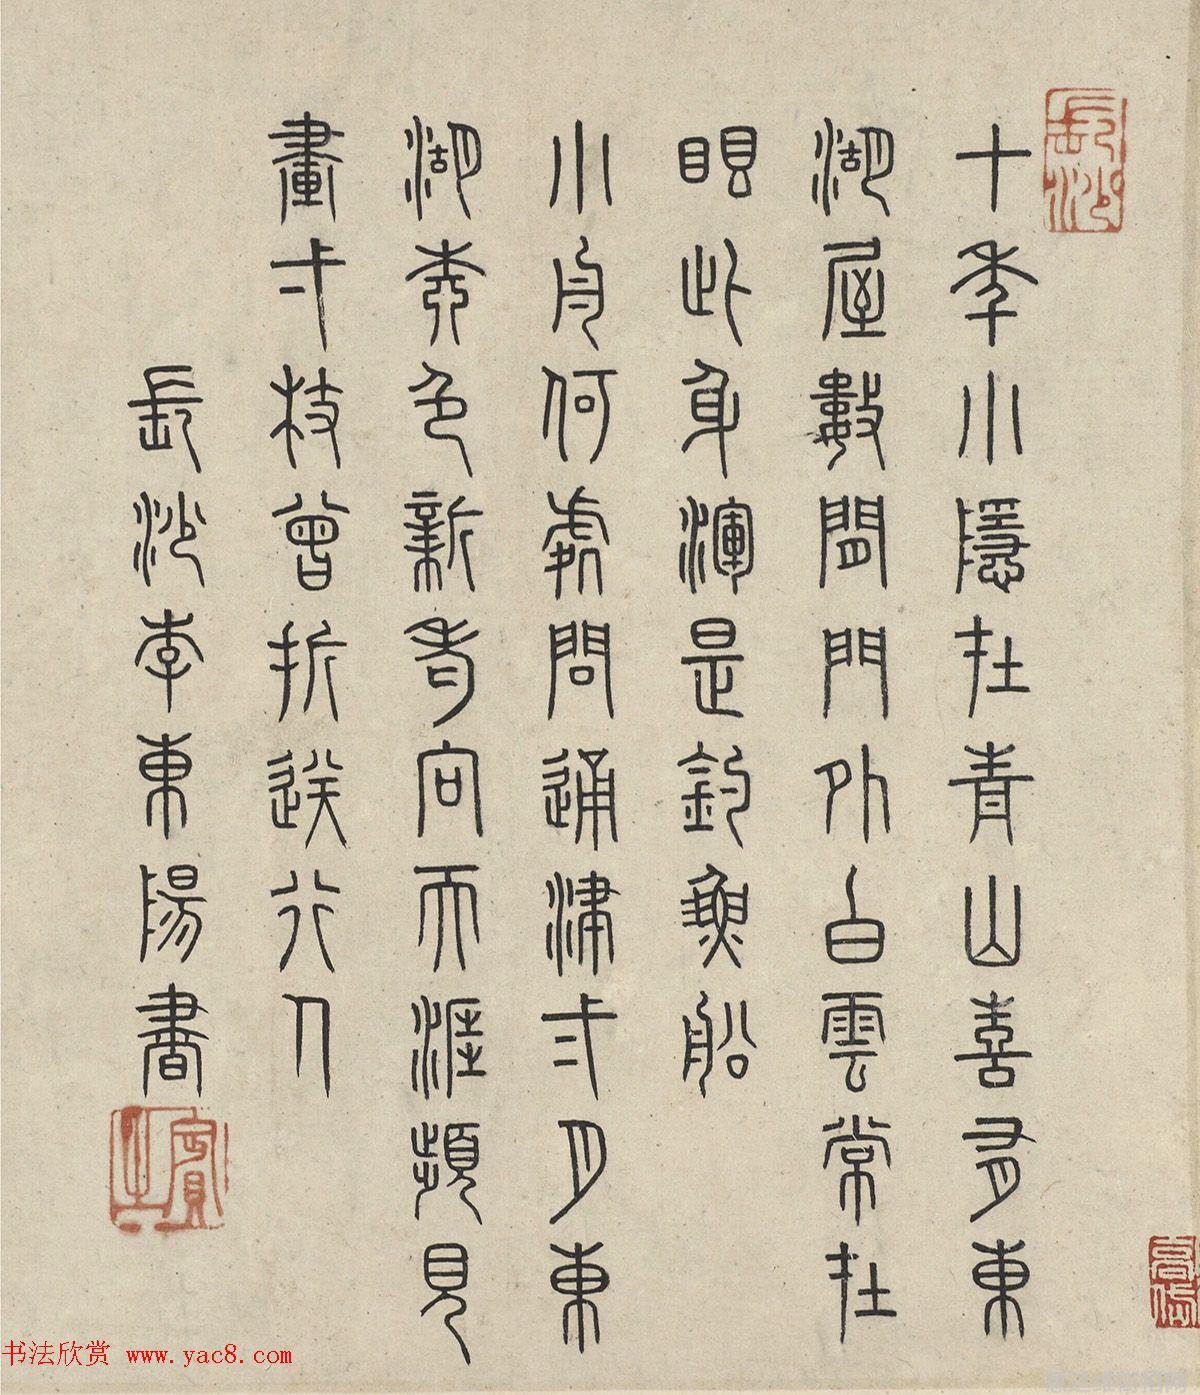 長沙
十年小隱在青山喜有東
湖屋數間門外白雲常在
眼此身渾是釣魚船
小舟何處問通津弍月東
湖柳色新看向天涯頻見
畫弍枝曾折送行人
長沙李東陽書
賓之
书法欣赏 www.yac8.com